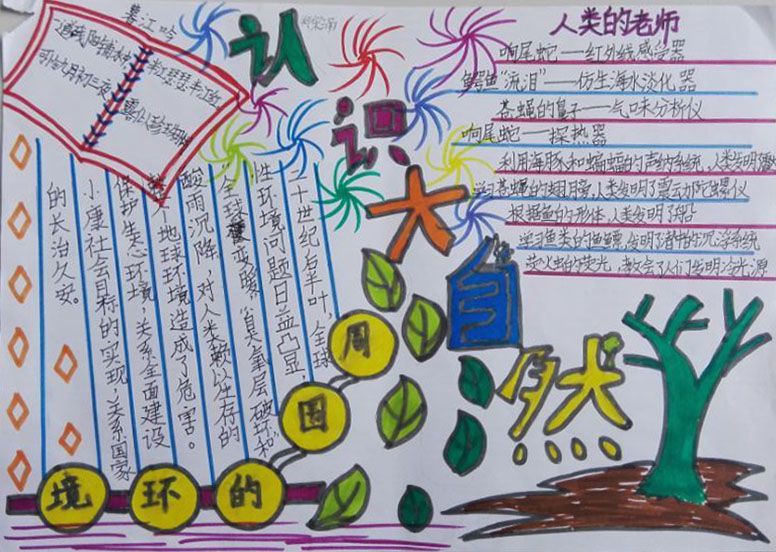 暮江吟
一道残阳铺水中
半江瑟瑟半江红
可怜九月初三夜
露似珍珠
认识大自然
人类的老师
响尾蛇——红外线感受器
鳄鱼"流泪"——仿生海水淡化器
苍蝇的鼻子——气味分析仪
响尾蛇——探热器
利用海豚和蝙蝠的声纳系统,人类发明
学习苍蝇的翅膀,人类发明了震动陀螺仪
根据鱼的形体,人类发明了船
学习鱼类的鱼鳔,发明了潜艇的沉浮系统
萤火虫的荧光,教会了人们发明冷光源
二十世纪后半叶,全球
性环境问题日益凸显,
全球变暖、臭氧层破坏和
酸雨沉降,对人类赖以生存的
整个地球环境造成了危害。
保护生态环境,关系全面建设
小康社会目标的实现,关系国家
的长治久安。
周围的环境